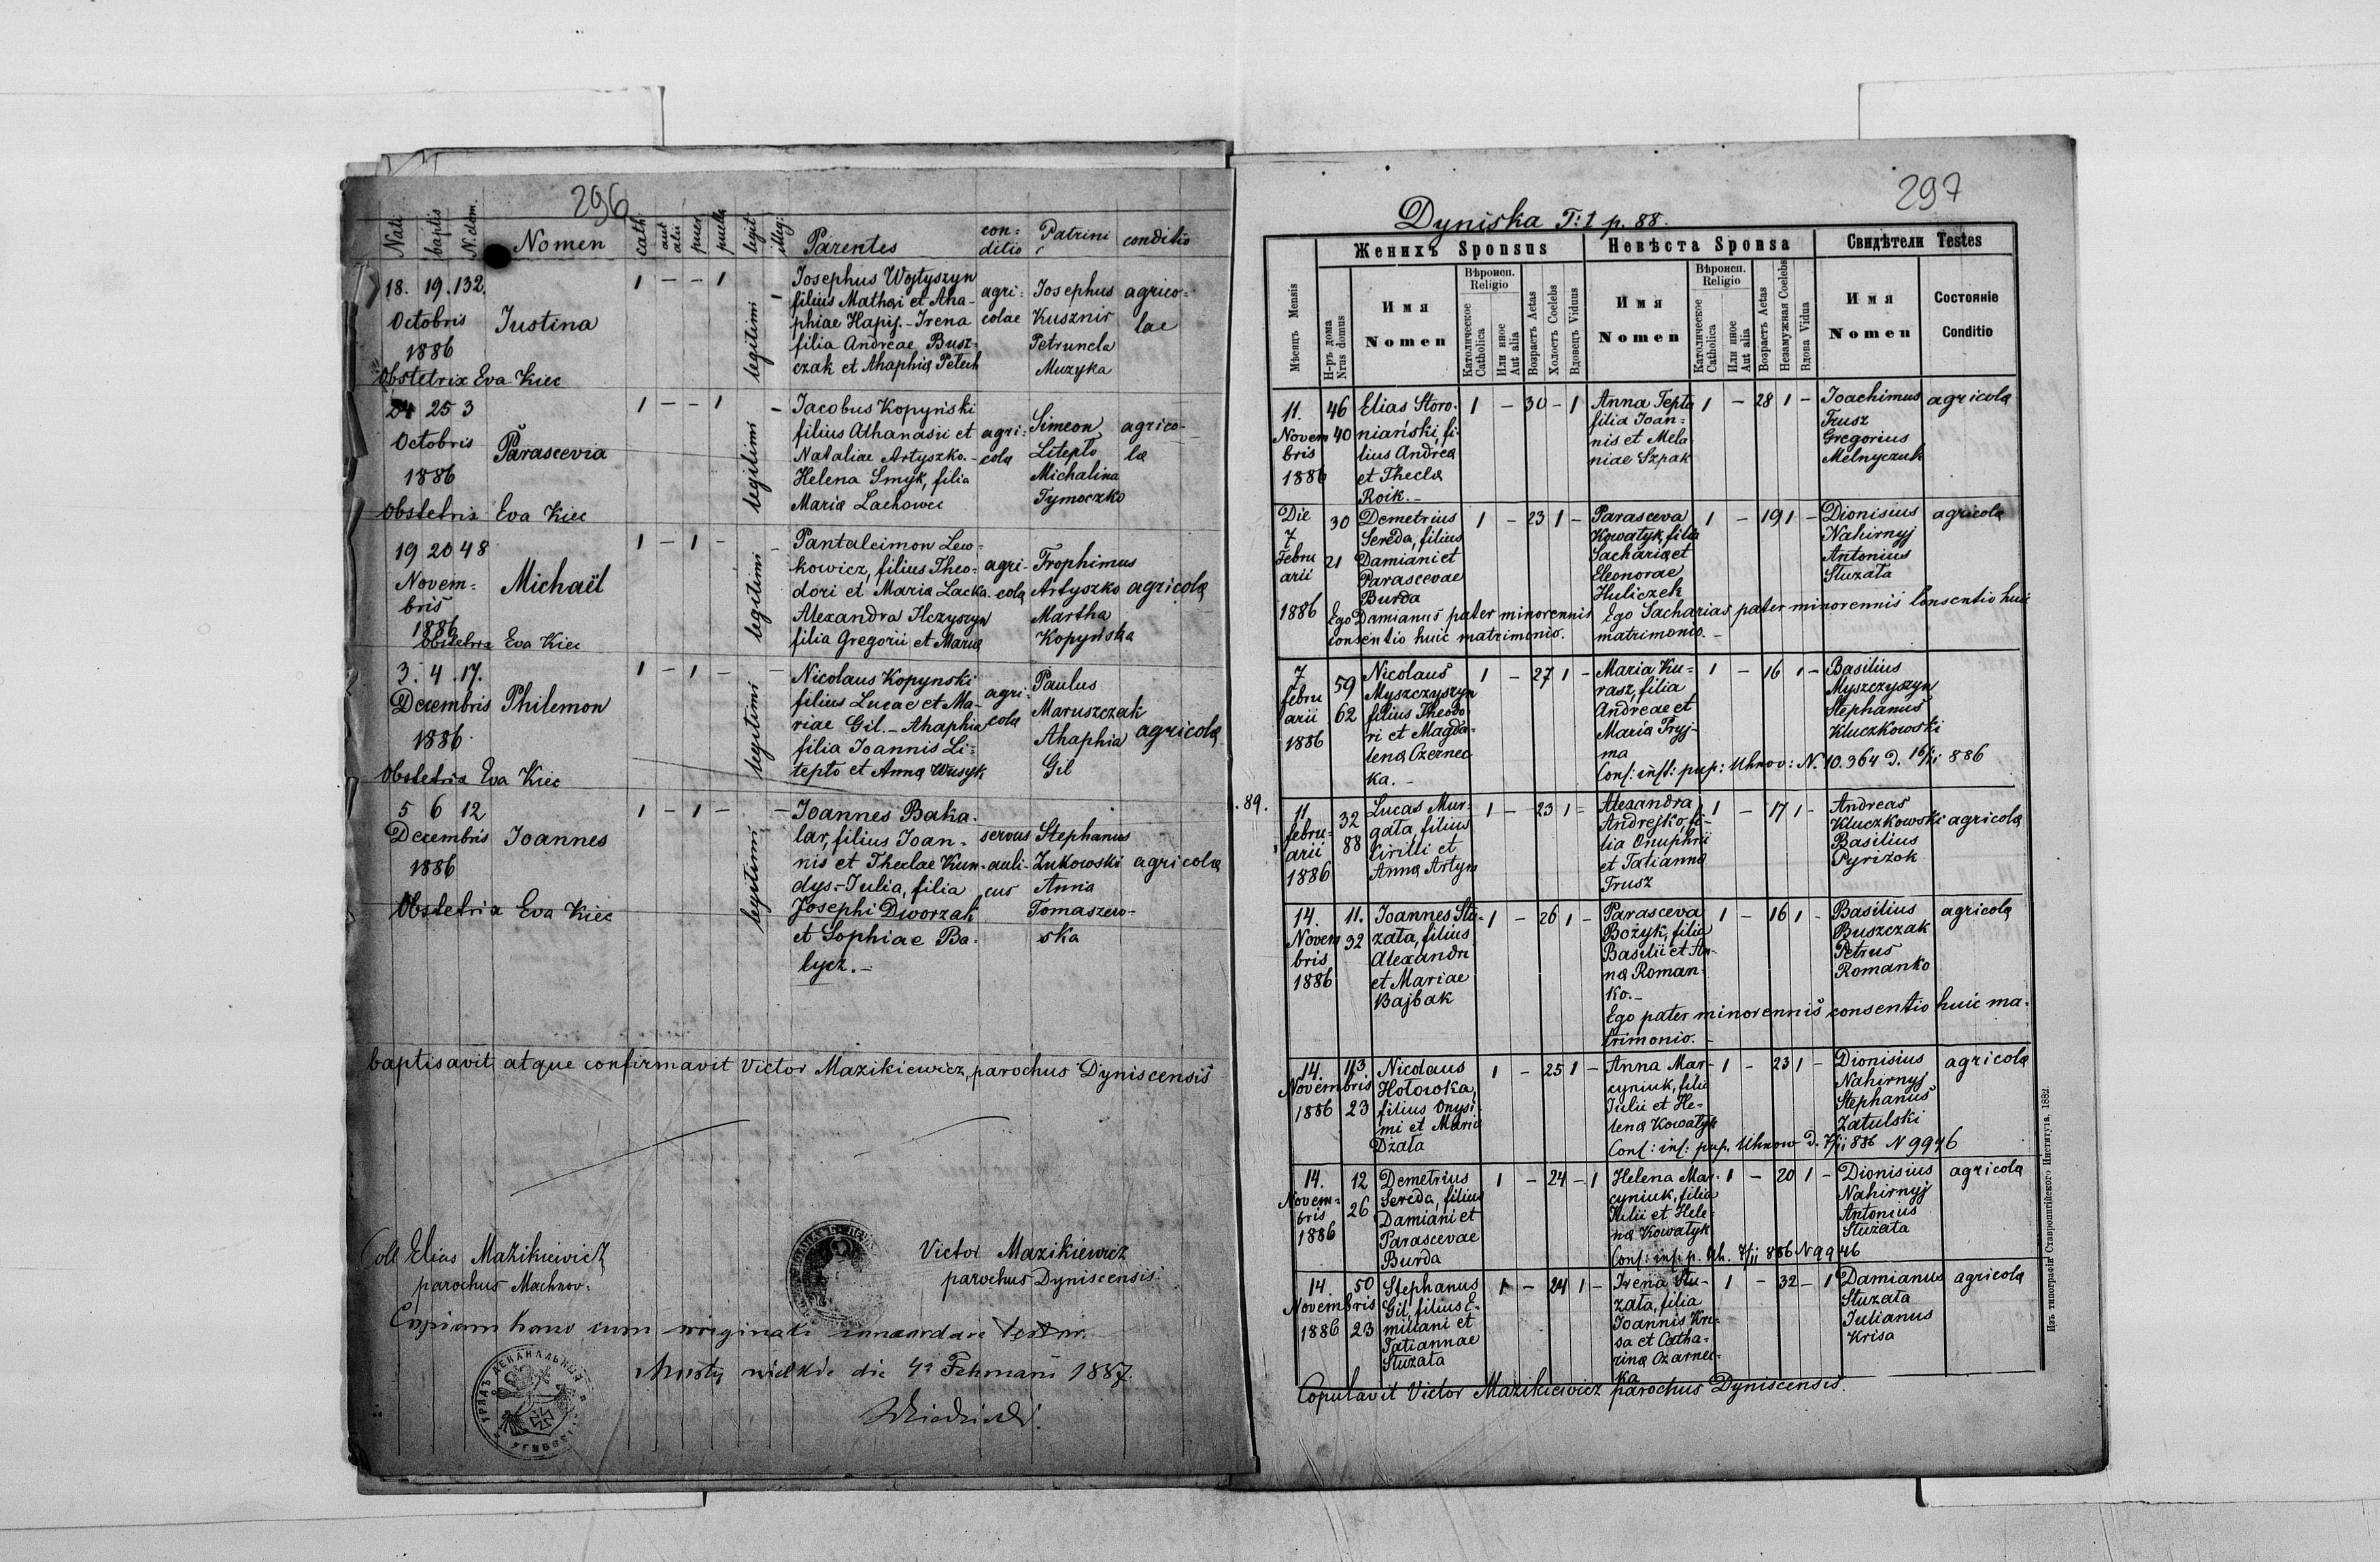 296
Nati
baptis
N. dom.
Nomen
cath.
aut alii
puer
puella
legit
illeg:
Parentes
con=
ditio
Patrini
conditio
18. 19. 132.
Octobris
1886
Justina
1 - - 1
legitimi
-
Josephus Wojtyszyn
filius Mathæi et Aha-
phiae Hapij. - Irena
filia Andreae Busz-
czak et Ahaphiæ Petech
agri=
colae
Josephus
Kusznir
Petrunela
Muzyka
agrico=
lae
Obstetrix Eva Kiec
24 25 3
Octobris
1886
Parascevia
1 - - 1
legitimi
-
Jacobus Kopyński
filius Athanasii et
Nataliae Artyszko. -
Helena Smyk, filia
Mariæ Lachowec
agri=
colæ
Simeon
Litepło
Michalina
Tymoczko
agrico-
læ
Obstetrix Eva Kiec
19 20 48
Novem=
bris
1886
Michaël
1 - 1 -
legitimi
-
Pantaleimon Lew-
kowicz, filius Theo-
dori et Mariæ Lacka.
Alexandra Ilczyszyn
filia Gregorii et Mariæ
agri-
colæ
Trophimus
Artyszko
Martha
Kopyńska
agricolæ
Obstetrix Eva Kiec
3. 4. 17.
Decembris
1886.
Philemon
1 - 1 -
legitimi
-
Nicolaus Kopynski
filius Lucae et Ma-
riae Gil. - Ahaphia
filia Joannis Li=
tepło et Annæ Wusyk
agri-
colæ
Paulus
Maruszczak
Ahaphia
Gil
agricolæ
Obstetrix Eva Kiec
5 6 12
Decembris
1886
Joannes
1 - 1 -
legitimi
-
Joannes Baka-
lar, filius Joan-
nis et Theclae Kun-
dys. - Julia, filia
Josephi Dworzak
et Sophiae Ba-
lycz. -
servus
auli-
cus
Stephanus
Żukowski
Anna
Tomaszew-
ska
agricolæ
Obstetrix Eva Kiec
baptisavit atque confirmavit Victor Mazikiewicz, parochus Dyniscensis
Coll Elias Mazikiewicz
parochus Machnov.
Victor Mazikiewicz
parochus Dyniscensis.
Copiam hanc cum originali concordare testor.
Mosty wielkie die 4ª Februarii 1887.
297
Dyniska T: 1 p. 88.
Женихъ Sponsus
Невѣста Sponsa
Свидѣтели Testes
Мѣсяцъ Mensis
Н-ръ дома
Nrus domus
Имя
Nomen
Вѣроисп.
Religio
Католическое
Catholica
Или иное
Aut alia
Возрастъ Aetas
Холостъ Coelebs
Вдовецъ Viduus
Имя
Nomen
Вѣроисп.
Religio
Католическое
Catholica
Или иное
Aut alia
Возрастъ Aetas
Незамужная Coelebs
Вдова Vidua
Имя
Nomen
Состояніе
Conditio
11.
Novem
bris
1886
46
40
Elias Storo-
niański, fi-
lius Andreæ
et Theclæ
Roik. -
1 - 30 - 1
Anna Tepła
filia Joan=
nis et Mela-
niae Szpak
1 - 28 1 -
Joachimus
Trusz
Gregorius
Melnyczuk
agricolæ
Die
7
Febru
arii
1886
30
21
Demetrius
Sereda, filius
Damiani et
Parascevae
Burda
1 - 23 1 -
Parasceva
Kowałyk, filia
Sachariæ et
Eleonorae
Huliczek
1 - 19 1 -
Dionisius
Nahirnyj
Antonius
Stuzała
agricolæ
Ego Damianus pater minorennis
consentio huic matrimonio.
Ego Sacharias pater minorennis consentio huic
matrimonio. -
7
febru
arii
1886
59
62
Nicolaus
Myszczyszyn
filius Theodo
ri et Magda-
lenæ Czernec
ka. -
1 - 27 1 -
Maria Ku=
rasz, filia
Andreae et
Mariæ Pryj-
ma
1 - 16 1 -
Basilius
Myszczyszyn
Stephanus
Kluczkowski
Cons: inst: pup: Uhnov: N. 10.364 D. 16/II 886
. 89.
11
febru-
arii
1886
32
88
Lucas Mur-
gała, filius
Cirilli et
Annæ Artym
1 - 23 1 -
Alexandra
Andrejko, fi-
lia Onuphrii
et Tatiannæ
Trusz
1 - 17 1 -
Andreas
Kluczkowski
Basilius
Pyriżok
agricolæ
14.
Novem
bris
1886
11.
32
Joannes Stu-
zała, filius
Alexandri
et Mariae
Bajbak
1 - 26 1 -
Parasceva
Bożyk, filia
Basilii et An-
næ Roman-
ko. -
1 - 16 1 -
Basilius
Buszczak
Petrus
Romanko
agricolæ
Ego pater minorennis consentio huic ma-
trimonio. -
14.
Novembris
1886
113
23
Nicolaus
Hołowka,
filius Onysi-
mi et Mariæ
Dżała
1 - 25 1 -
Anna Mar-
cyniuk, filia
Julii et He-
lenæ Kowałyk
1 - 23 1 -
Dionisius
Nahirnyj
Stephanus
Zatulski
agricolæ
Cons: ins: pup. Uhnow D. 7/II 886 N 9946
14.
Novem-
bris
1886
12
26
Demetrius
Sereda, filius
Damiani et
Parascevae
Burda
1 - 24 - 1
Helena Mar-
cyniuk, filia
Julii et Hele-
næ Kowałyk
1 - 20 1 -
Dionisius
Nahirnyj
Antonius
Stuzała
agricolæ
Cons: ins: p. Uh. 7/II 886 N 9946
14.
Novembris
1886
50
23
Stephanus
Gil, filius E-
miliani et
Tatiannae
Stuzała
1 - 24 1 -
Irena Stu-
zała, filia
Joannis Kri-
sa et Catha-
rinæ Czarnec-
ka
1 - 32 - 1
Damianus
Stuzała
Julianus
Krisa
agricolæ
Copulavit Victor Mazikiewicz parochus Dyniscensis.
Изъ типографіи Ставропигійского Института. 1882.